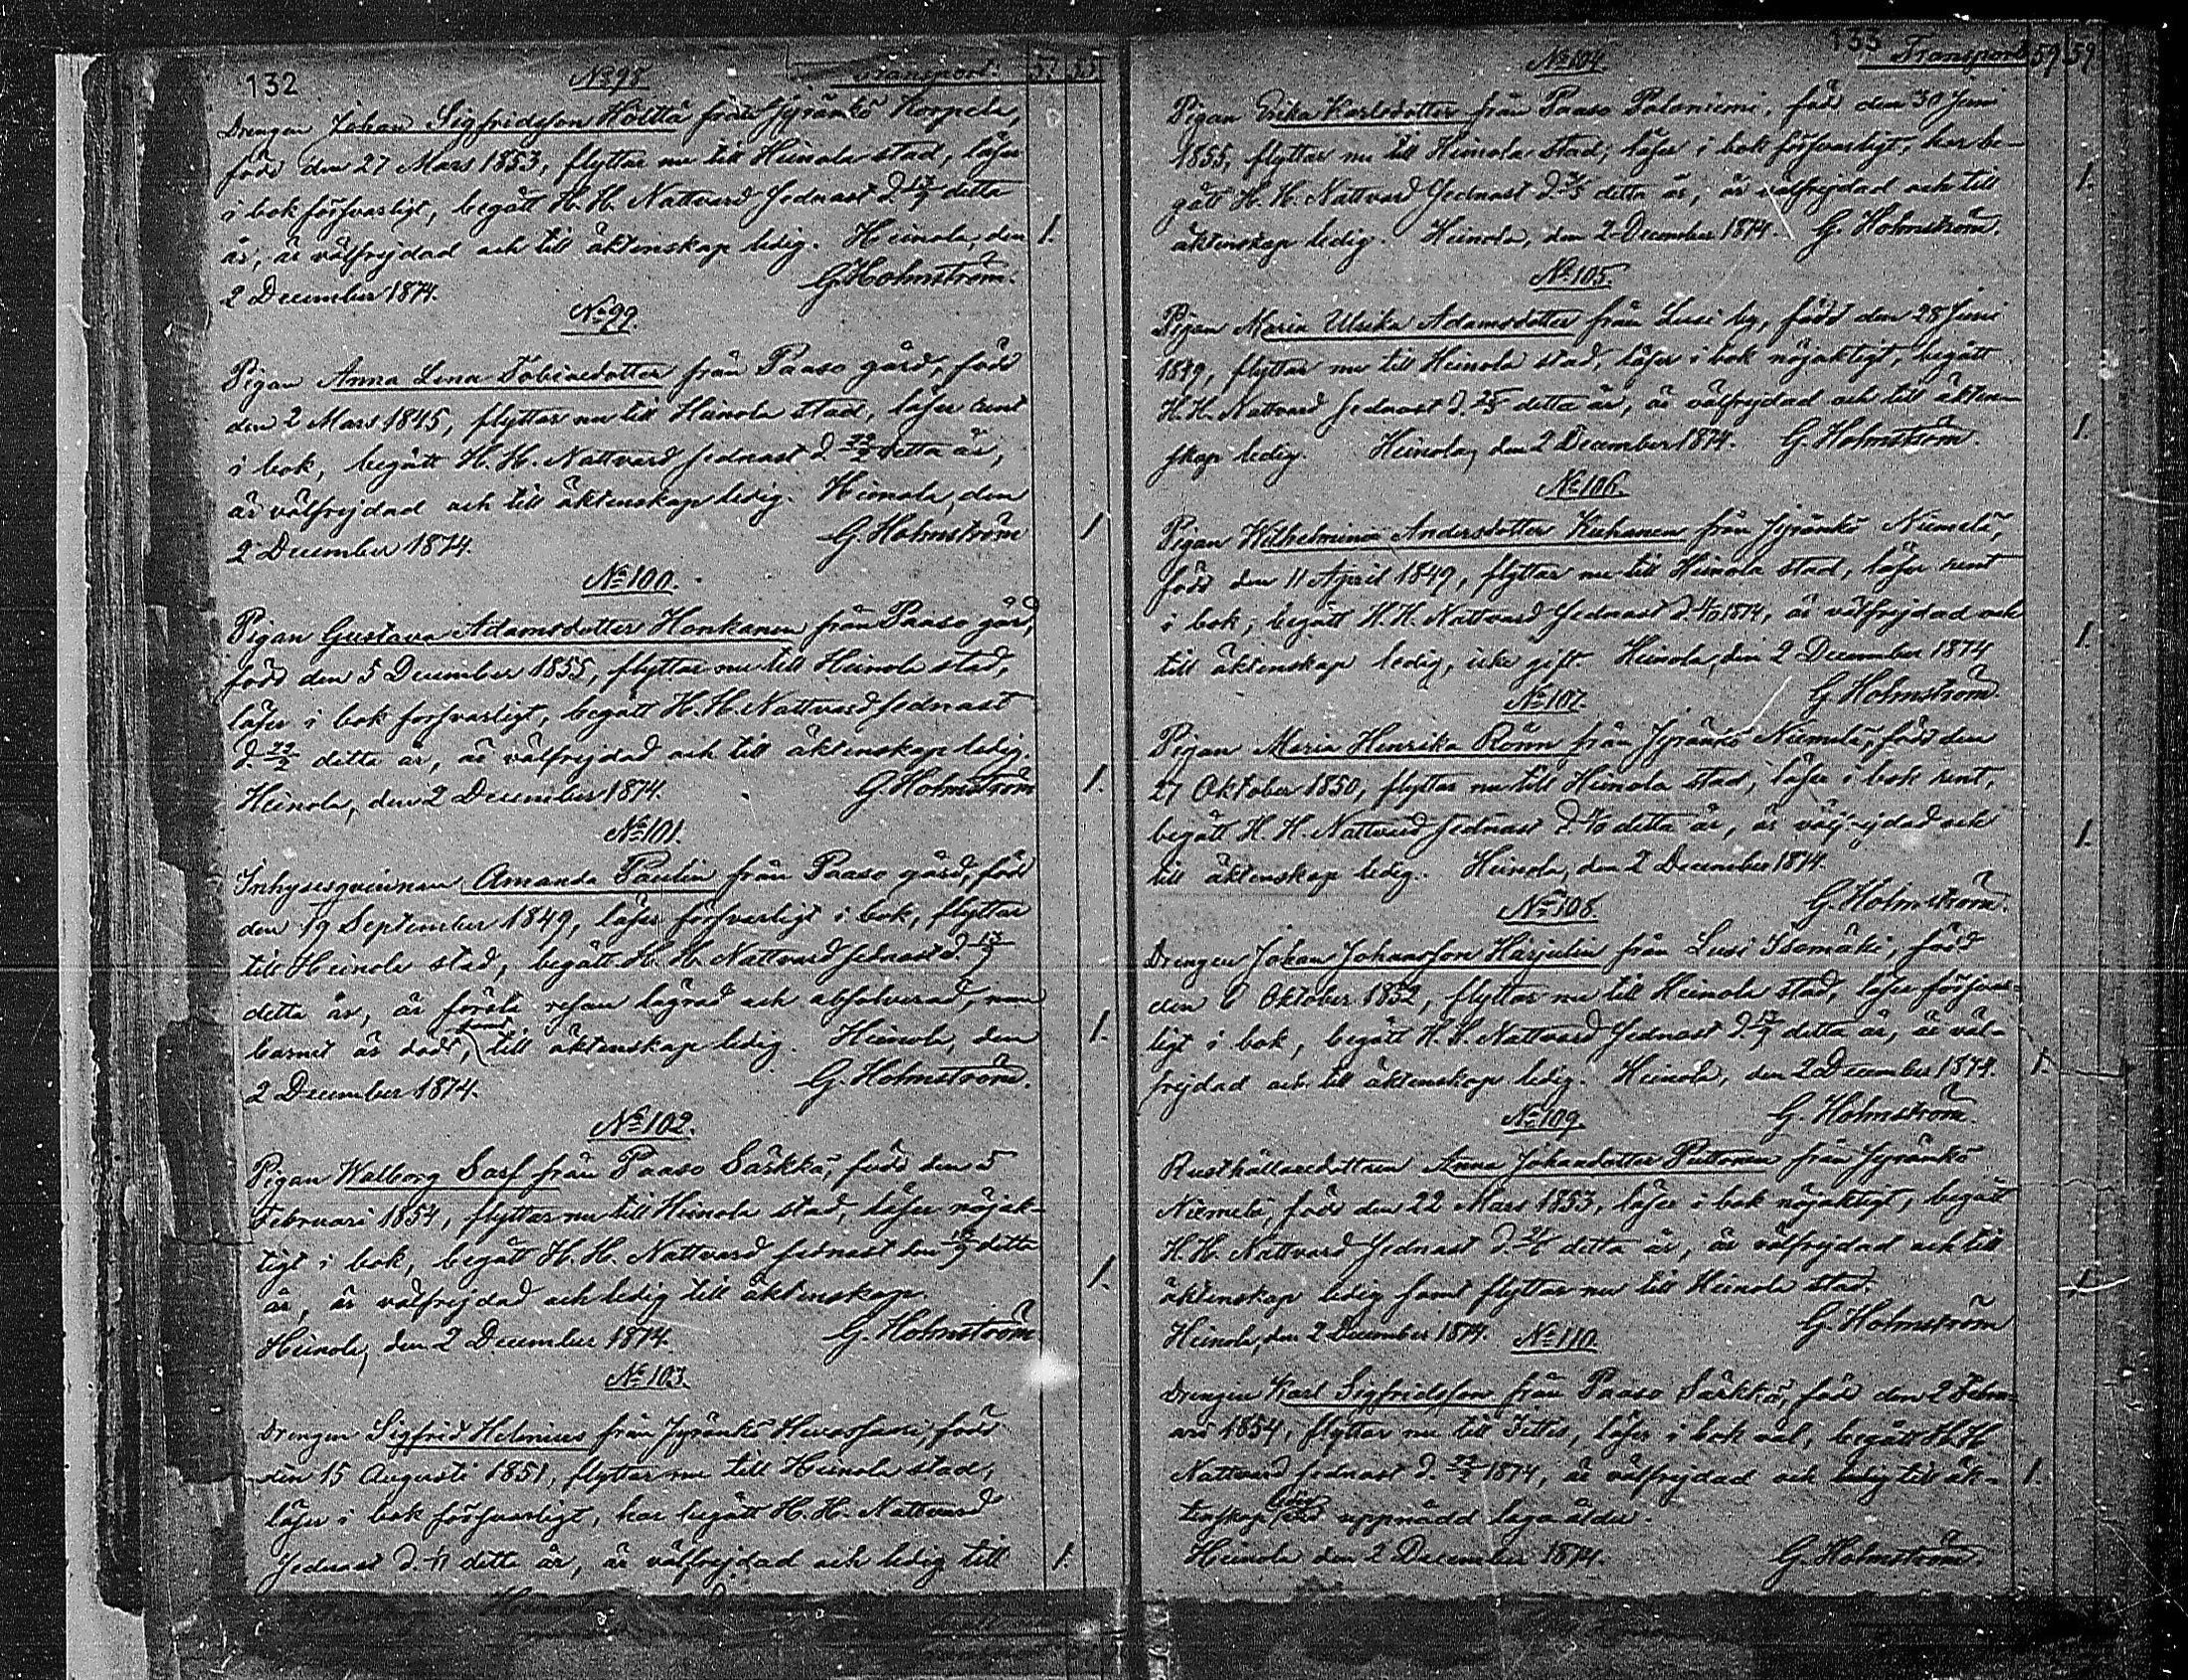 132 No 98. Transport: 57 55
Drengen Johan Sigfridsson Hölttä från Jyränkö Korpela,
född den 27 Mars 1853, flyttar nu till Heinola stad, läser
i bok försvarligt, begått H. H. Nattvard sednast d. 12/7 detta
år, är välfrejdad och till äktenskap ledig. Heinola, den 1.
2 December 1874. G. Holmström.
No 99.
Pigan Anna Lena Tobiasdotter från Paaso gård, född
den 2 Mars 1845, flyttar nu till Heinola stad, läser rent
i bok, begått H. H. Nattvard sednast d detta år,
är välfrejdad och till äktenskap ledig. Heinola, den 1
2 December 1874. G. Holmström
No 100.
Pigan Gustava Adamsdotter Honkanen från Paaso gård,
född den 5 December 1855, flyttar nu till Heinola stad,
läser i bok försvarligt, begått H. H. Nattvard sednast
d. 22/2 detta år, är välfrejdad och till äktenskap ledig.
Heinola, den 2 December 1874. G. Holmström 1.
No 101.
Inhysesqvinnan Amanda Paulin från Paaso gård, född
den 19 September 1849, läser försvarligt i bok, flyttar
till Heinola stad, begått H. H. Nattvard sednast d.
detta år, är första resan lägrad och absolverad, men
barnet är dödt, samt till äktenskap ledig. Heinola, den 1.
2 December 1874. G. Holmström.
No 102.
Pigan Walborg Sarf från Paaso Särkkä, född den 5
Februari 1854, flyttar nu till Heinola stad, läser nöjak-
tigt i bok, begått H. H. Nattvard sednast den detta
år, är välfrejdad och ledig till äktenskap. 1.
Heinola, den 2 December 1874. G. Holmström
No 103.
Drengen Sigfrid Helenius från Jyränkö född
den 15 Augusti 1851, flyttar nu till Heinola stad,
läser i bok försvarligt, har begått H. H. Nattvard
sednast d. detta år, är välfrejdad och ledig till 1.
133 No 104. Transport 59 59
Pigan Erika Karlsdotter från Paaso Palaniemi, född den 30 Juni
1855, flyttar nu till Heinola stad, läser i bok försvarligt, har be-
gått H. H. Nattvard sednast d. detta år, är välfrejdad och till 1.
äktenskap ledig. Heinola, den 2 December 1874. G. Holmström.
No 105.
Pigan Maria Ulrika Adamsdotter från Lusi by, född den 28 Juni
1849, flyttar nu till Heinola stad, läser i bok nöjaktigt, begått
H. H. Nattvard sednast d. detta år, är välfrejdad och till äkten- 1.
skap ledig. Heinola, den 2 December 1874. G. Holmström.
No 106.
Pigan Wilhelmina Andersdotter Kuhanen från Jyränkö Niemelä,
född den 11 April 1849, flyttar nu till Heinola stad, läser rent
i bok, begått H. H. Nattvard sednast d. 1874, är välfrejdad och 1.
till äktenskap ledig, icke gift. Heinola, den 2 December 1874
No 107. G. Holmström
Pigan Maria Henrika Rönn från Jyränkö Niemelä, född den
27 Oktober 1850, flyttar nu till Heinola stad, läser i bok rent,
begått H. H. Nattvard sednast d. detta år, är välfrejdad och 1.
till äktenskap ledig. Heinola, den 2 December 1874.
No 108. G. Holmström.
Drengen Johan Johansson Harjulin från Lusi Isomäki, född
den 6 Oktober 1852, flyttar nu till Heinola stad, läser försvar-
ligt i bok, begått H. H. Nattvard sednast d. detta år, är väl-
frejdad och till äktenskap ledig. Heinola, den 2 December 1874. 1.
No 109. G. Holmström.
Rusthållaredottren Anna Johansdotter från Jyränkö
Niemelä, född den 22 Mars 1853, läser i bok nöjaktigt, begått
H. H. Nattvard sednast d. detta år, är välfrejdad och till
äktenskap ledig samt flyttar nu till Heinola stad. 1.
Heinola, den 2 December 1874. No 110. G. Holmström
Drengen Karl Sigfridsson från Paaso Särkkä, född den 2 Febru-
ari 1854, flyttar nu till Iittis, läser i bok väl, begått H. H.
Nattvard sednast d. 1874, är välfrejdad och ledig till äk- 1.
tenskap uppnådd laga ålder.
Heinola den 2 December 1874. G. Holmström.